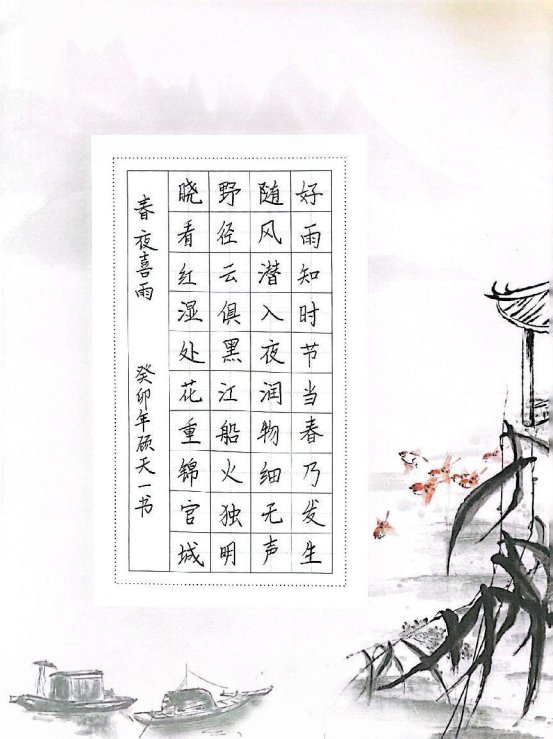 好雨知时节当春乃发生
随风潜入夜润物细无声
野径云俱黑江船火独明
晓看红湿处花重锦官城
春夜喜雨
癸卯年硕天一书